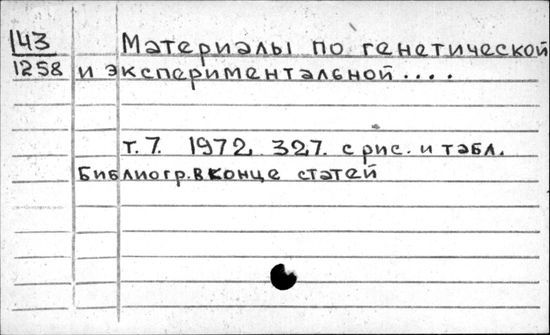 143
1258
Материалы по генетической
и экспериментальной ....
т. 7. 1972. 327. с рис. и табл.
Библиогр. в конце статей